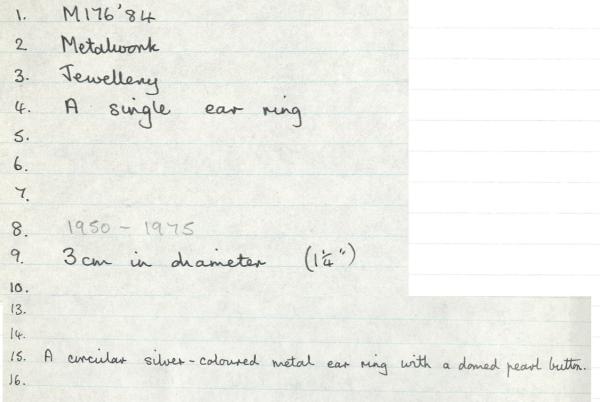 1. M176'84
2 Metalwork
3. Jewellery
4. A single ear ring
5.
6.
7.
8. 1950 - 1975
9. 3cm in diameter (1¼")
10.
13.
14.
15. A circular silver-coloured metal ear ring with a domed pearl button.
16.